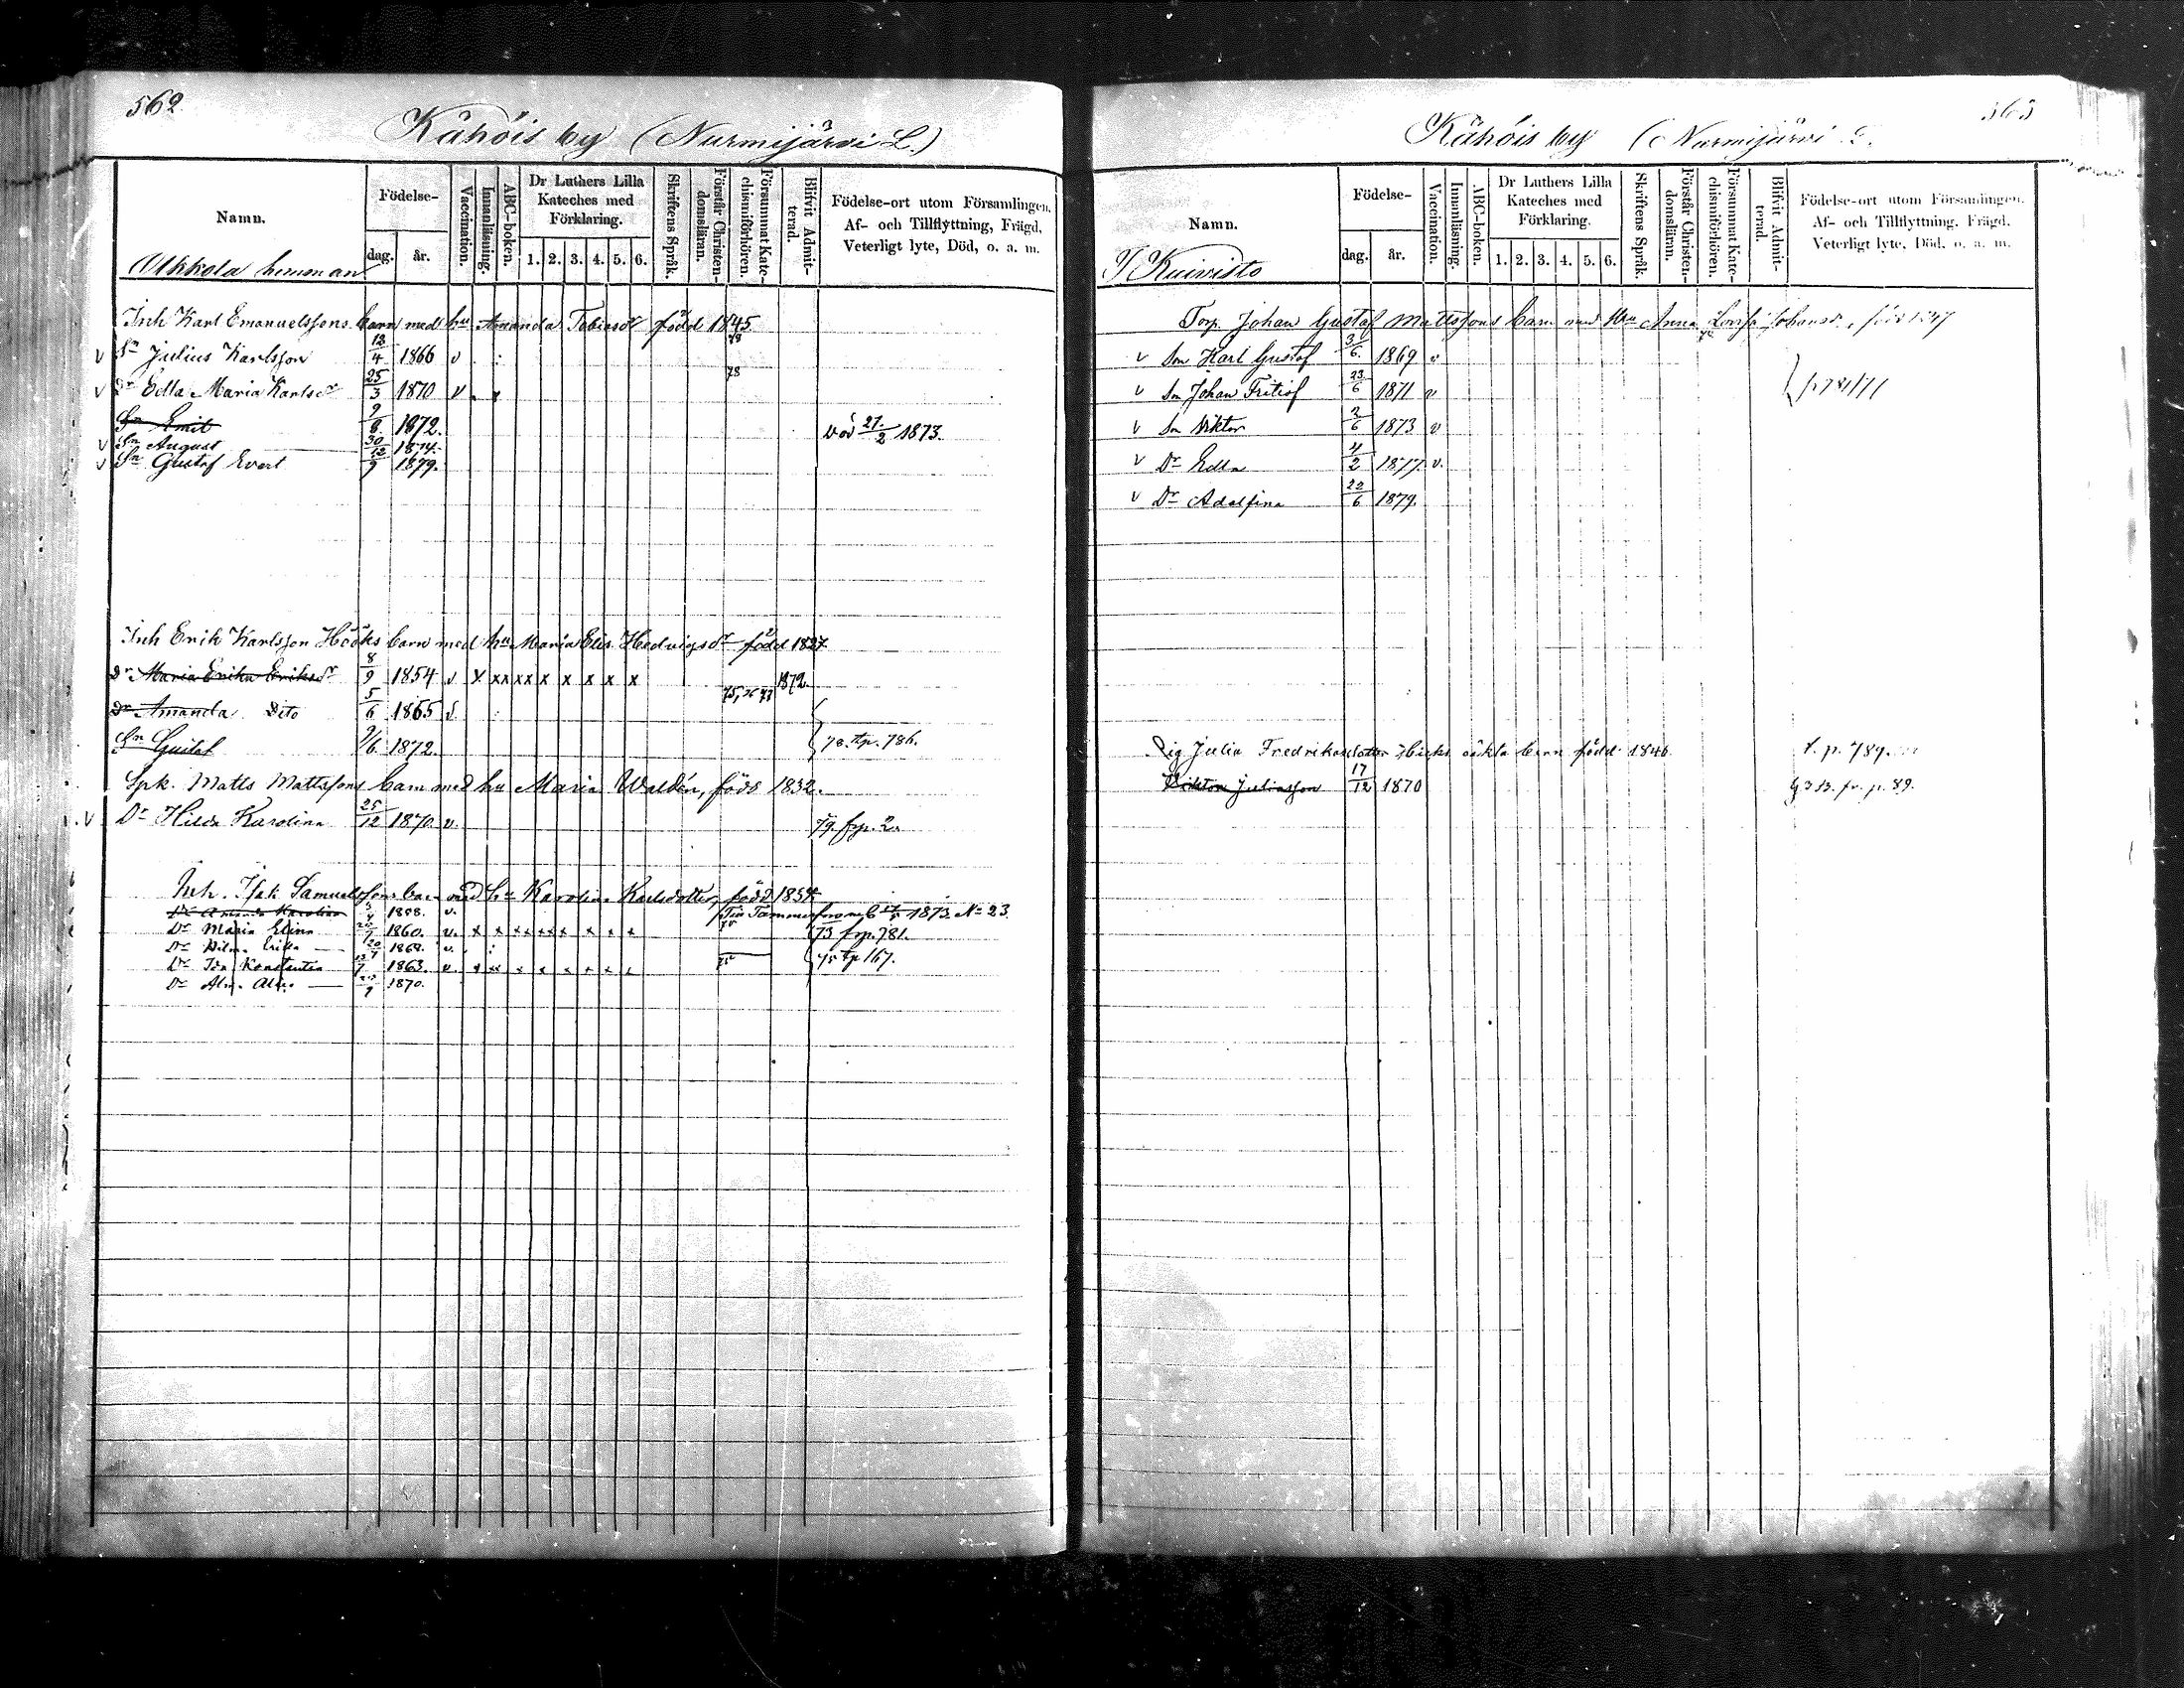 562
Kähöis by (Nurmijärvi L.)
Namn.
Födelse-
dag.
år.
Vaccination.
Innanläsning.
ABC-boken.
Dr Luthers Lilla Kateches med Förklaring.
1. 2. 3. 4. 5. 6.
Skriftens Språk.
Förstår Christen-domsläran.
Försummat Kate-chismiförhören.
Blifvit Admit-terad.
Födelse-ort utom Församlingen, Af- och Tillflyttning, Frägd, Veterligt lyte, Död, o. a. m.
Ukkola
Inh Karl Emanuelssons barn med hu Amanda Tobiasdr född 1845
v Sn Julius Karlsson 13/4 1866 v 78
v Dr Edla Maria Karlsdr 25/3 1870 v 78
Sn Emil 9/8 1872. död 27/2 1873.
v Sn August 30 1874.
v Sn Gustaf Evert 12/9 1879.
Inh Erik Karlsson Hööks barn med hu Maria Elis. Hedvigsdr född 1827
Dr Maria Erika Eriksdr 8/9 1854 v x xx xx x x x x x 1872.
Dr Amanda Dito 5/6 1865 75, 76 77
Sn Gustaf 9/6 1872. 78. tp. 786.
Spk. Matts Mattssons barn med hu Maria Waldén, född 1832.
v Dr Hilda Karolina 25/12 1870 v. 79. frp. 2.
Inh. Isak Samuelssons barn med hu Karolina Karlsdotter, född 1834
Dr Amanda Karolina 1858. v. Till Tammerfors 1873. No 23.
Dr Maria Elina 1860. v. x x x x x x x x 75 73 frp. 781.
Dr Vilm. Erika v.
Dr Ida Konstantia 1863. v. 75 75 tp 167.
Dr Alm. 1870.
Kähöis by (Nurmijärvi
Namn.
Födelse-
dag.
år.
Vaccination.
Innanläsning.
ABC-boken.
Dr Luthers Lilla Kateches med Förklaring.
1. 2. 3. 4. 5. 6.
Skriftens Språk.
Förstår Christen-domsläran.
Försummat Kate-chismiförhören.
Blifvit Admit-terad.
Födelse-ort utom Församlingen, Af- och Tillflyttning, Frägd, Veterligt lyte, Död, o. a. m.
Kuivisto
Torp. Johan Gustaf Mattssons barn med Hu Anna Lovisa Johansdr, född 1847
v Son Karl Gustaf 1869 v
v Son Johan Fritiof 23/6 1871 v
v Son Viktor 2/6 1873 v
v Dr Edla 4/2 1877. v.
v Dr Adolfina 22/6 1879.
Pig Julia Fredriksdotter oäkta barn född 1846 t. p. 789.
Viktor Juliasson 17/12 1870 fr. p. 89.